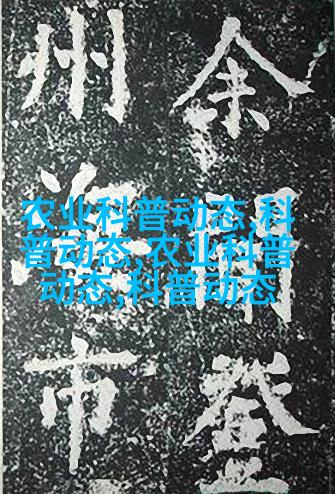 余聞登
州海市
农业科普动态,科
普动态,农业科普
动态,科普动态